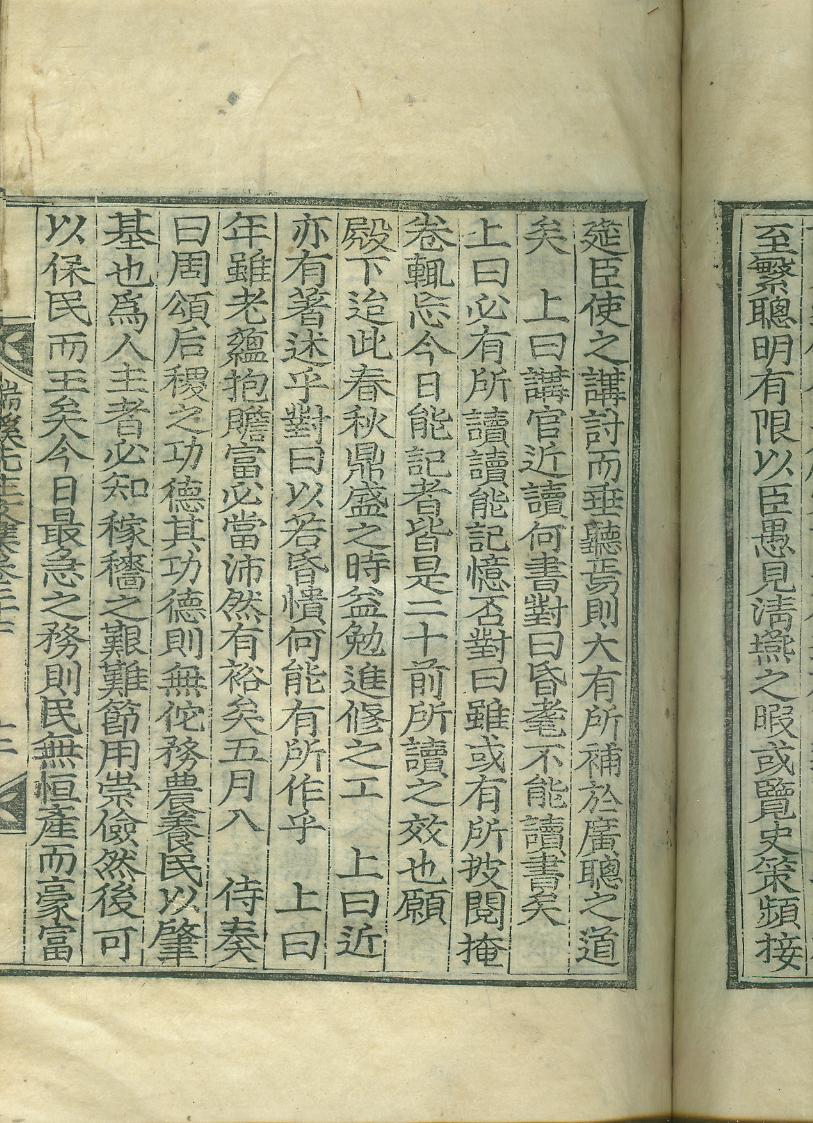 至繁聰明有限以臣愚見淸燕之暇或覽史策頻接
筵臣使之講討而垂聽焉則大有所補於廣聰之道
矣　上曰講官近讀何書對曰昏耄不能讀書矣
上曰必有所讀讀能記憶否對曰雖或有所披閱掩
卷輒忘今日能記者皆是二十前所讀之效也願
殿下迨此春秋鼎盛之時益勉進修之工　上曰近
亦有著述乎對曰以若昏憒何能有所作乎　上曰
年雖老蘊抱贍富必當沛然有裕矣五月入　侍奏
曰周頌后稷之功德其功德則無佗務農養民以肇
基也爲人主者必知稼穡之艱難節用崇儉然後可
以保民而王矣今日最急之務則民無恒產而豪富